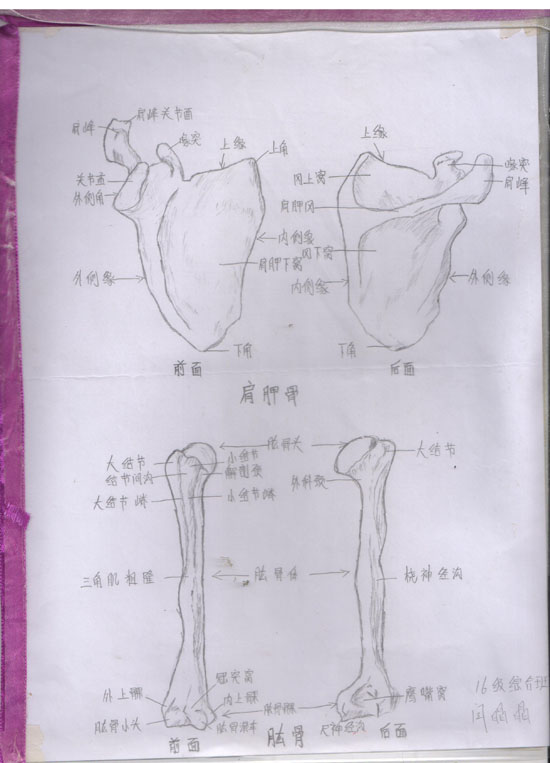 肩峰关节面
肩峰
喙突
上缘
上角
关节盂
外侧角
外侧缘
内侧缘
肩胛下窝
下角
前面
上缘
冈上窝
喙突
肩峰
肩胛冈
冈下窝
内侧缘
外侧缘
下角
后面
肩胛骨
大结节
结节间沟
大结节嵴
肱骨头
小结节
解剖颈
小结节嵴
大结节
外科颈
三角肌粗隆
肱骨体
桡神经沟
冠突窝
外上髁
内上髁
肱骨小头
肱骨滑车
前面
肱骨髁
鹰嘴窝
尺神经沟
后面
肱骨
16级综合班